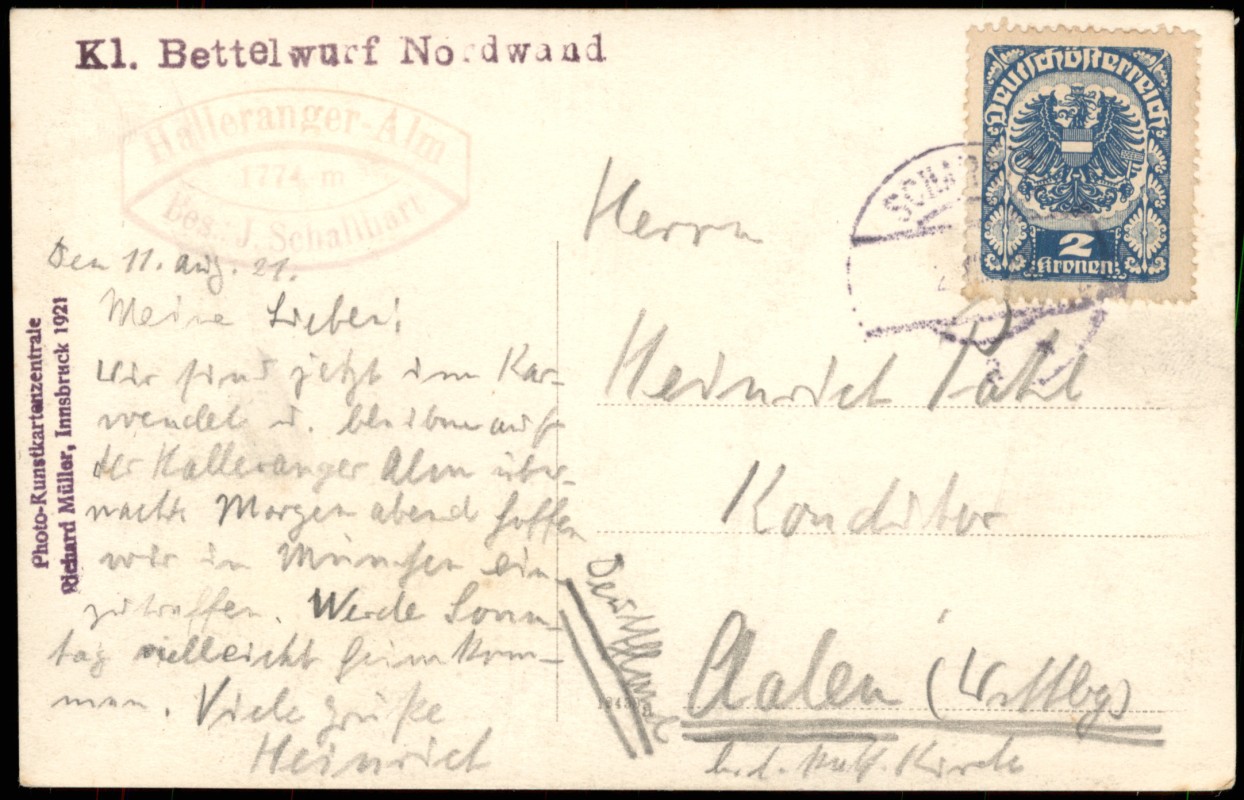 Kl. Bettelwurf Nordwand
Halleranger-Alm
1774 m
Bes.: J. Schallhart
Deutschösterreich
2
Kronen
SCHAR
Photo-Kunstkartenzentrale
Richard Müller, Innsbruck 1921
Den 11. Aug. 21.
Meine Lieben!
Wir sind jetzt im Kar-
wendel u. bleiben auf
der Halleranger Alm über-
nacht. Morgen abend hoffen
wir in München ein-
zutreffen. Werde Sonn-
tag vielleicht heimkom-
men. Viele Grüße
Heinrich
Herrn
Heinrich Pahl
Konditor
Aalen (Württbg)
b. d. kath. Kirche